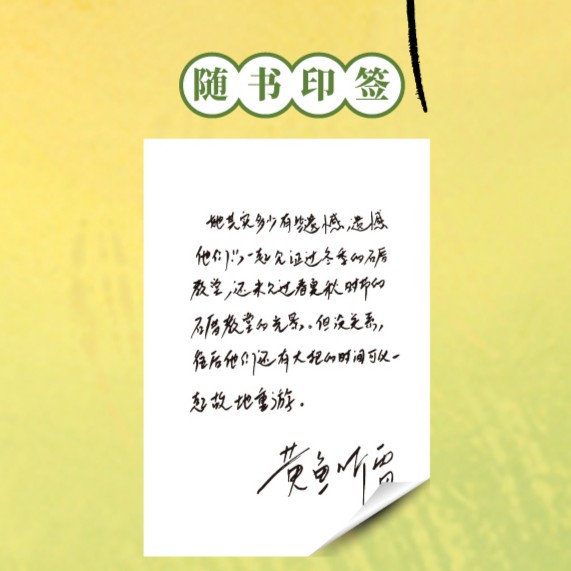 随书印签
她其实多少有些遗憾，遗憾
他们只一起见证过冬季的石厝
教堂，还未见过春夏秋时节的
石厝教堂的光景。但没关系，
往后他们还有大把的时间可以一
起故地重游。
黄鱼听雷